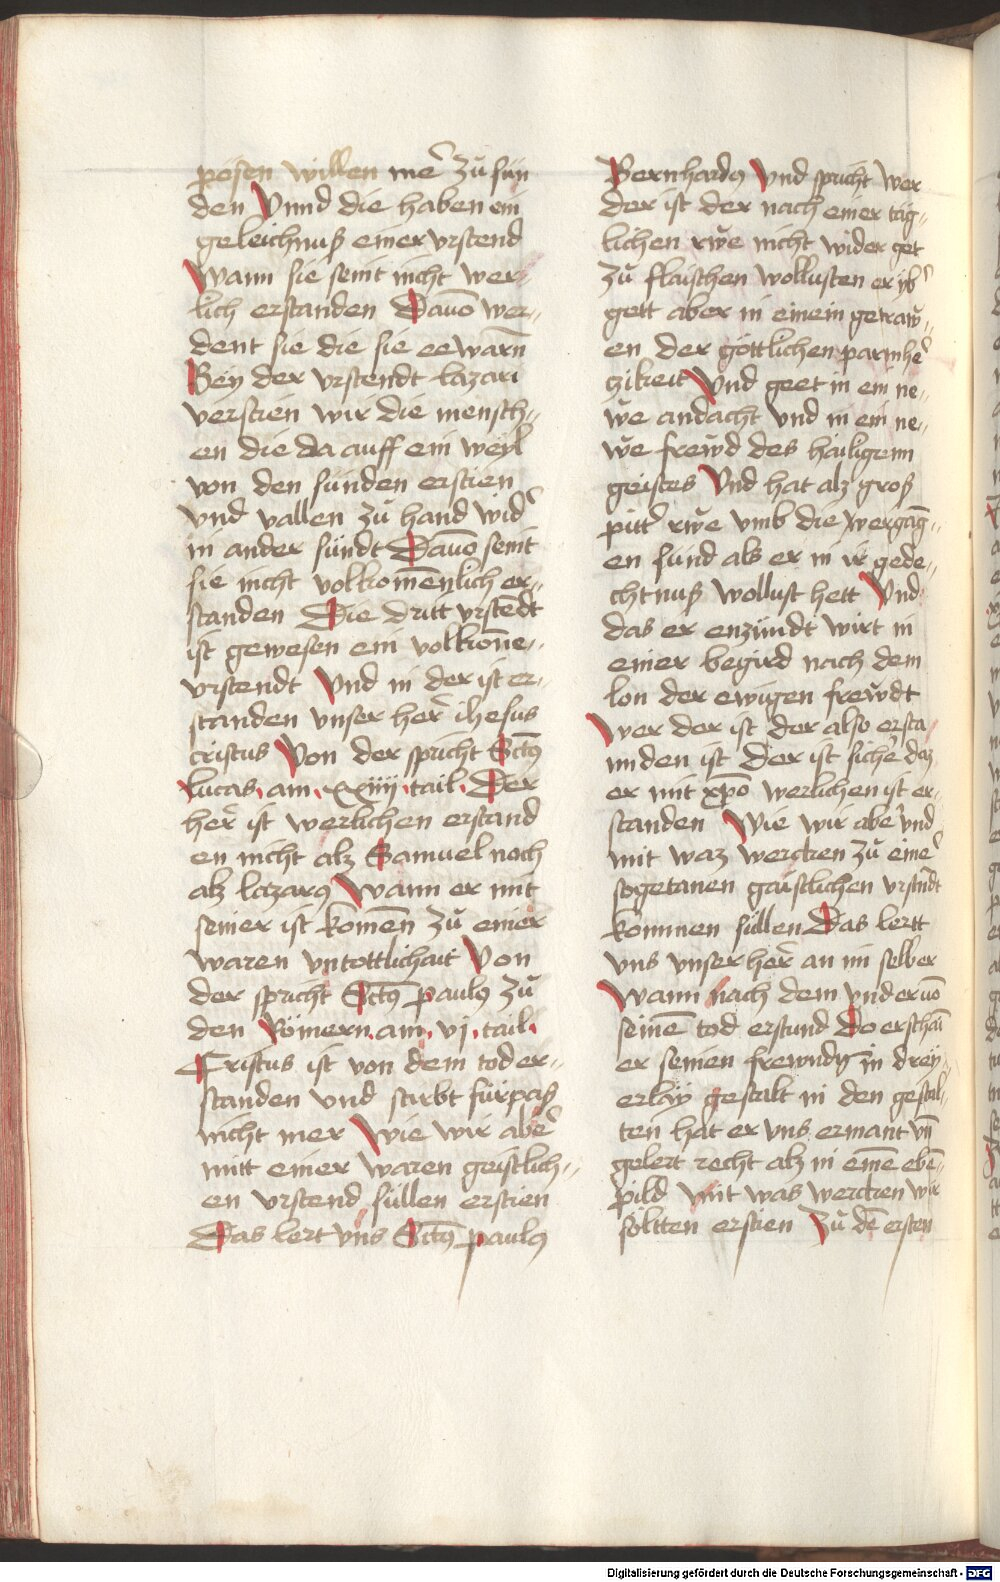 pösen willen me᷑ zu sün
den Vnnd die haben ein
geleichnuß einer vrstend
Wann sie seint nicht wer-
lich erstanden Dauō wer-
dent sie die sie ee warn̄
Bey der vrstendt lazari
versteen wir die mensch-
en die da auff ein weyl
von den sünden ersteen
vnd vallen zů hand wid᷑
in ander sündt Dauō seint
sie nicht volkomēnlich er-
standen Die dritt vrstendt
ist gewesen ein volkōne-
vrstendt Vnd in der ist er-
standen vnser her᷑ ihesus
cristus Von der spricht Sctūs
lucas am xxiiij tail Der
her᷑ ist werlichen erstand
en nicht alz Samuel noch
alz lazarꝯ Wann er mit
seiner ist komēn zů einer
waren vntottlichait Von
der spricht Sctūs paulꝯ zů
den Römern am vj tail
Cristus ist von dem tod er-
standen vnd starbt fürpaß
nicht mer Wie wir abe᷑
mitt einer waren geistlich-
en vrstend süllen ersteen
Das lert vns Sctūs paulꝯ
Bernhardꝯ Vnd spricht Wer
der ist der nach einer täg-
lichen rw̌e nicht wider get
zů flaischen wollusten er yb᷑
gett aber in einem getraw̌-
en der göttlichen parmhe᷑
czikeit Vnd geet in ein ne-
w̌e andacht vnd in ein ne-
w̌e frew̌d des hailigenn
geistes Vnd hat alz groß
pitt᷑ rw̌e vmb die vergāg-
en sünd als er in ir gede-
chtnuß wollust hett Vnd
das er enzündt wirt in
einer begird nach dem
lon der ewigen frew̌dt
Wer der ist der also ersta
nnden ist Der ist siche᷑ daz
er mit xp̄o werlichen ist er-
standen Wie wir abe᷑ vnd
mit waz wercken zů eine᷑
sogetanen gaistlichen vrstndt
kommen süllen Das lertt
vns vnser her᷑ an im selber
Wann nach dem vnd er uō
seinē tod erstund Do erschaī
er seinen frewndn̄ in drey-
erläy gestalt in den gestal-
ten hat er vns ermant vn̄
gelert recht alz in einē ebē-
pild mit was wercken wir
söltten ersteen Zů dē ersten
Digitalisierung gefördert durch die Deutsche Forschungsgemeinschaft - DFG